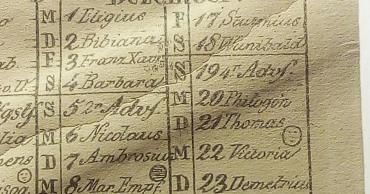 M 1 Eligius
D 2 Bibiana
F 3 Franz Xav.
S 4 Barbara
S 5 2r Adv.
M 6 Nicolaus
D 7 Ambrosius
M 8 Mar. Empf.
F 17
S 18 Wunibald
S 19 4r Adv.
M 20 Philogon
D 21 Thomas
M 22 Victoria
D 23 Demetrius